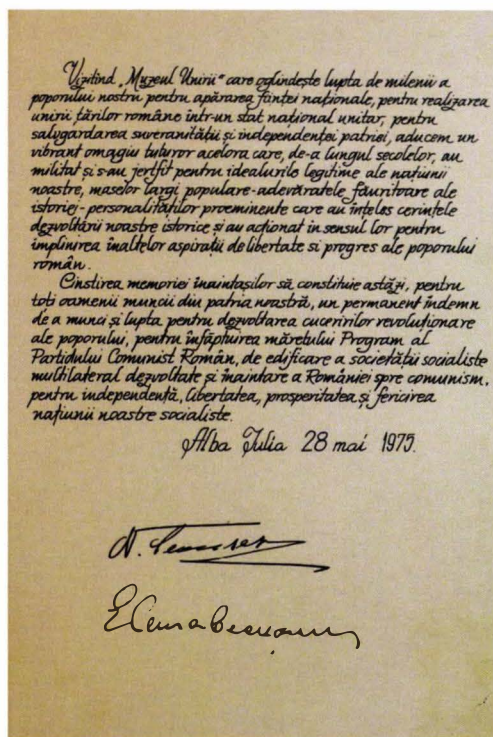 Vizitînd „Muzeul Unirii" care oglindește lupta de milenii a
poporului nostru pentru apărarea ființei naționale, pentru realizarea
unirii țărilor române într-un stat național unitar, pentru
salvgardarea suveranității și independenței patriei, aducem un
vibrant omagiu tuturor acelora care, de-a lungul secolelor, au
militat și s-au jertfit pentru idealurile legitime ale națiunii
noastre, maselor largi populare-adevăratele făuritoare ale
istoriei-personalităților proeminente care au înțeles cerințele
dezvoltării noastre istorice și au acționat în sensul lor pentru
împlinirea înaltelor aspirații de libertate și progres ale poporului
român.
Cinstirea memoriei înaintașilor să constituie astăzi, pentru
toți oamenii muncii din patria noastră, un permanent îndemn
de a munci și lupta pentru dezvoltarea cuceririlor revoluționare
ale poporului, pentru înfăptuirea mărețului Program al
Partidului Comunist Român, de edificare a societății socialiste
multilateral dezvoltate și înaintare a României spre comunism,
pentru independența, libertatea, prosperitatea și fericirea
națiunii noastre socialiste.
Alba Iulia 28 mai 1975.
N. Ceaușescu
Elena Ceaușescu